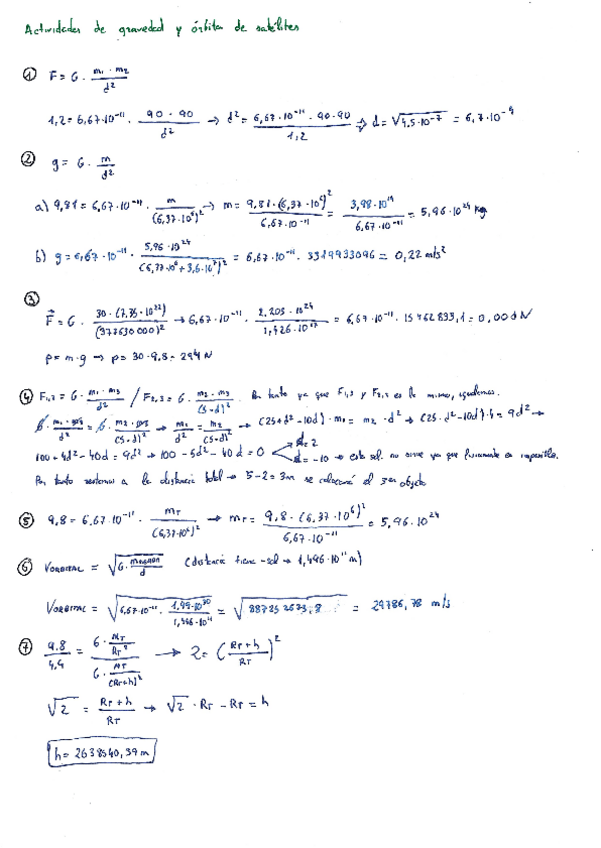 Actividades de gravedad y órbitas de satélites
① F = G · m₁ · m₂ / d²
1,2 = 6,67·10⁻¹¹ · 90 · 90 / d² → d² = 6,67·10⁻¹¹ · 90·90 / 1,2 → d = √4,5·10⁻⁷ = 6,7·10⁻⁴
② g = G · m / d²
a) 9,81 = 6,67·10⁻¹¹ · m / (6,37·10⁶)² → m = 9,81·(6,37·10⁶)² / 6,67·10⁻¹¹ = 3,98·10¹⁴ / 6,67·10⁻¹¹ = 5,96·10²⁴ kg
b) g = 6,67·10⁻¹¹ · 5,96·10²⁴ / (6,37·10⁶ + 3,6·10⁷)² = 6,67·10⁻¹¹ · 3319933096 = 0,22 m/s²
③ F = G · 30·(7,35·10²²) / (377630000)² → 6,67·10⁻¹¹ · 2,205·10²⁴ / 1,426·10¹⁷ = 6,67·10⁻¹¹ · 15462833,1 = 0,001 N
p = m·g → p = 30·9,8 = 294 N
④ F₁,₃ = G · m₁ · m₃ / d² / F₂,₃ = G · m₂ · m₃ / (5-d)² . Por tanto ya que F₁,₃ y F₂,₃ es lo mismo, igualamos.
G · m₁ · m₃ / d² = G · m₂ · m₃ / (5-d)² → m₁ / d² = m₂ / (5-d)² → (25+d²-10d) · m₁ = m₂ · d² → (25+d²-10d)·4 = 9d² →
100+4d²-40d = 9d² → 100-5d²-40d = 0 d=2 d=-10 → esta sol. no sirve ya que físicamente es imposible.
Por tanto restamos a la distancia total → 5-2=3m se colocará el 3er objeto
⑤ 9,8 = 6,67·10⁻¹¹ · mT / (6,37·10⁶)² → mT = 9,8·(6,37·10⁶)² / 6,67·10⁻¹¹ = 5,96·10²⁴
⑥ Vorbital = √G · / d (distancia tierra-sol → 1,496·10¹¹ m)
Vorbital = √6,67·10⁻¹¹ · 1,99·10³⁰ / 1,496·10¹¹ = = 29786,78 m/s
⑦ 9.8 / 4,9 = G · MT / RT² / G · MT / (RT+h)² → 2 = (RT+h / RT)²
√2 = RT+h / RT → √2 · RT - RT = h
h = 2638540,39 m